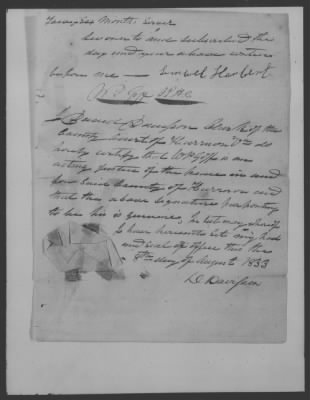 Twenty Six Months Server
Sworn to and subscribed the
day and year above written
before me — Samuel Herbert
W. P. Goff J.P. H.C.
I Daniel Davisson Clerk of the
County Court of Harrison Va do
hereby certify that W P Goff is an
acting Justice of the peace in and
for Said County of Harrison and
that the above Signature purporting
to be his is genuine, In testimony whereof
I have hereunto Set my hand
and seal of office this the
8th day of August 1833
D. Davisson